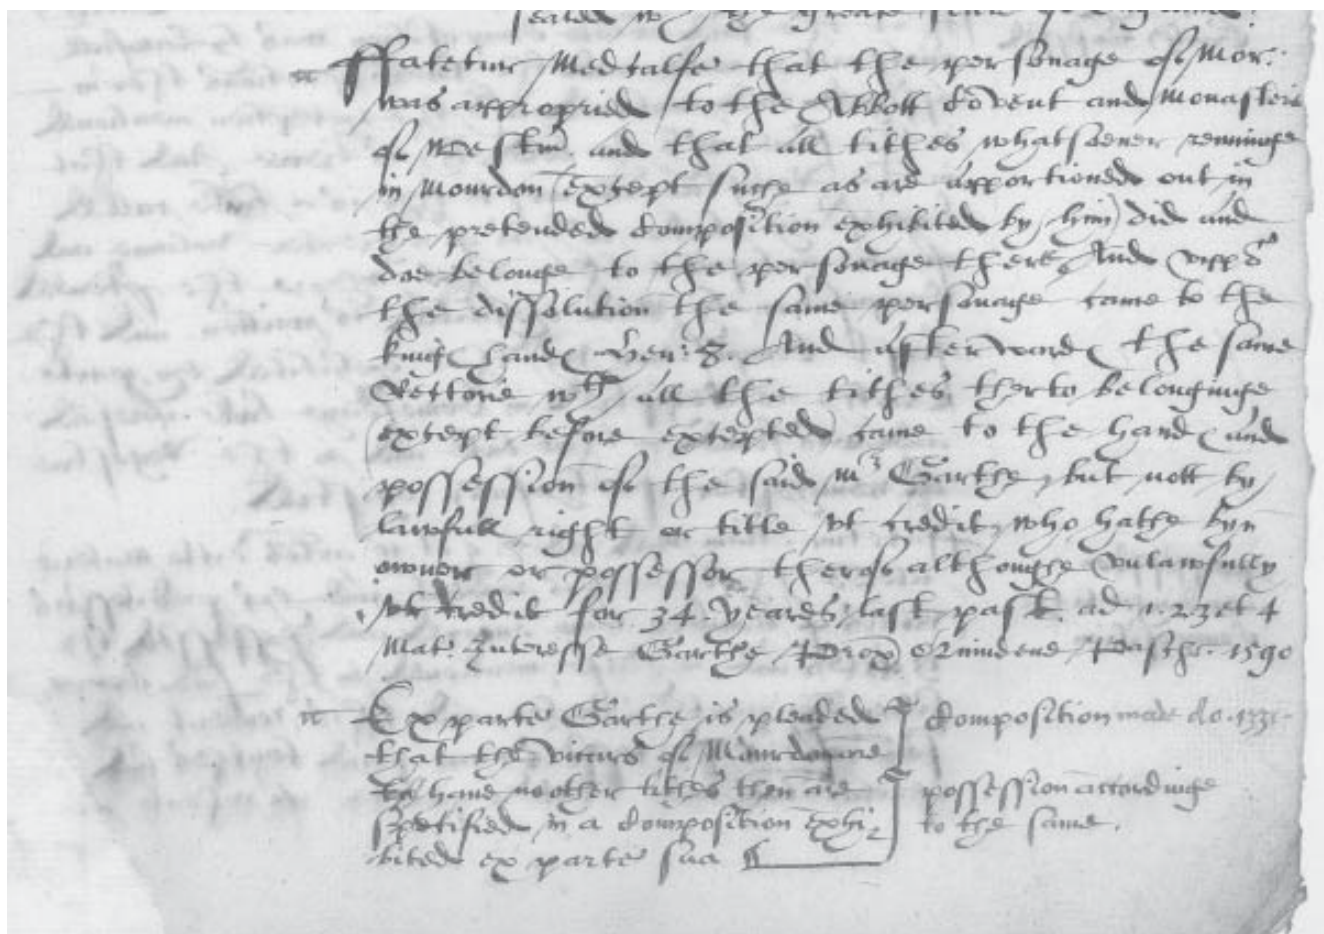 sealed wth the greate seale of England.
ffatetur Medcalfe that the personage of Mor:
was appropried to the Abbott Covent and Monasterie
of Westm. and that all tithes whatsoever reninge
in Mourdon (except suche as are apportioned out in
the pretended Composition exhibited by him) did and
doe belonge to the personage there, And uppō
the dissolution the same personage came to the
kings hands Hen: 8. And afterwards the same
Rectorie wth all the tithes therto belonginge
(except before excepted) came to the hands and
possession of the said Mr Garthe, but nott by
lawfull right or title ut credit, who hathe byn
owner or possessor therof althoughe unlawfully
ut credit for 34 yeares last past. ad 1. 2. 3 et 4
Mat. Interesse Garthe, Prox Crmine Pasche. 1590
Ex parte Garthe is pleaded
that the vicars of Mourdon
to have no other tithes then are
specified in a Composition exhi-
bited ex parte sua
Composition made Ao. 1331.
possession accordinge
to the same.